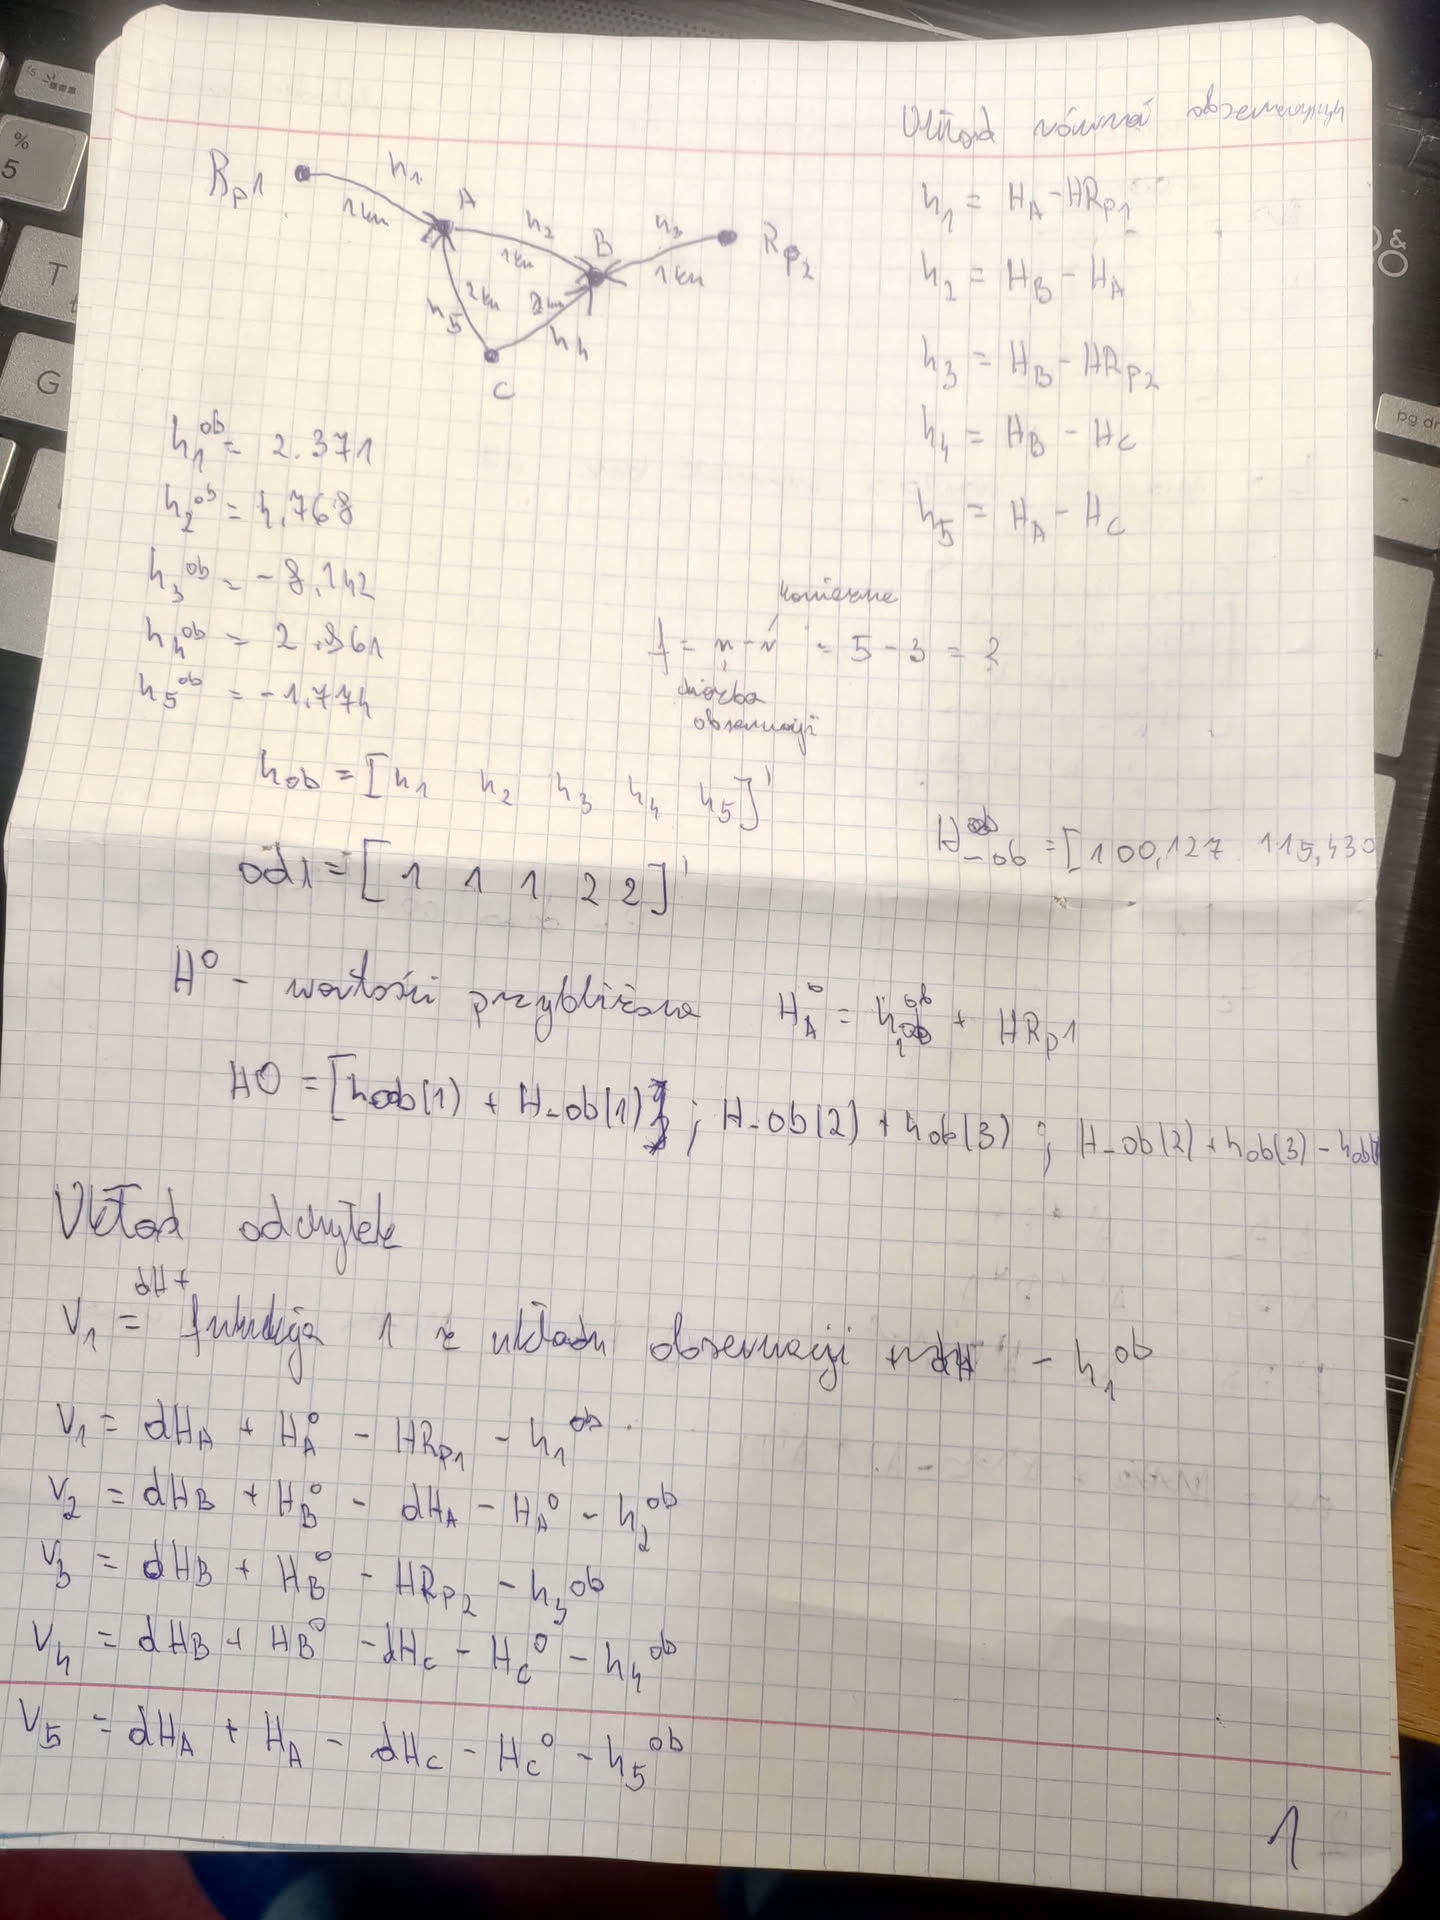 Układ równań obserwacyjnych
Rp1
h1
1km
A
h2
1km
B
h3
1km
Rp2
h5
2km
2km
h4
C
h1 = HA - HRp1
h2 = HB - HA
h3 = HB - HRp2
h4 = HB - HC
h5 = HA - HC
h1^ob = 2.371
h2^ob = 4,768
h3^ob = -8,142
h4^ob = 2.961
h5^ob = -1,774
konieczne
f = n - n' = 5 - 3 = 2
liczba
obserwacji
hob = [h1 h2 h3 h4 h5]'
H_ob = [100,127 115,430
odl = [1 1 1 2 2]'
H^0 - wartości przybliżone HA^0 = h1^ob + HRp1
H0 = [hob(1) + H_ob(1) ; H_ob(2) + hob(3) ; H_ob(2) + hob(3) - hob(
Układ odchyłek
dH +
V1 = funkcja 1 z układu obserwacji - h1^ob
V1 = dHA + HA^0 - HRp1 - h1^ob
V2 = dHB + HB^0 - dHA - HA^0 - h2^ob
V3 = dHB + HB^0 - HRp2 - h3^ob
V4 = dHB + HB^0 - dHC - HC^0 - h4^ob
V5 = dHA + HA - dHC - HC^0 - h5^ob
1